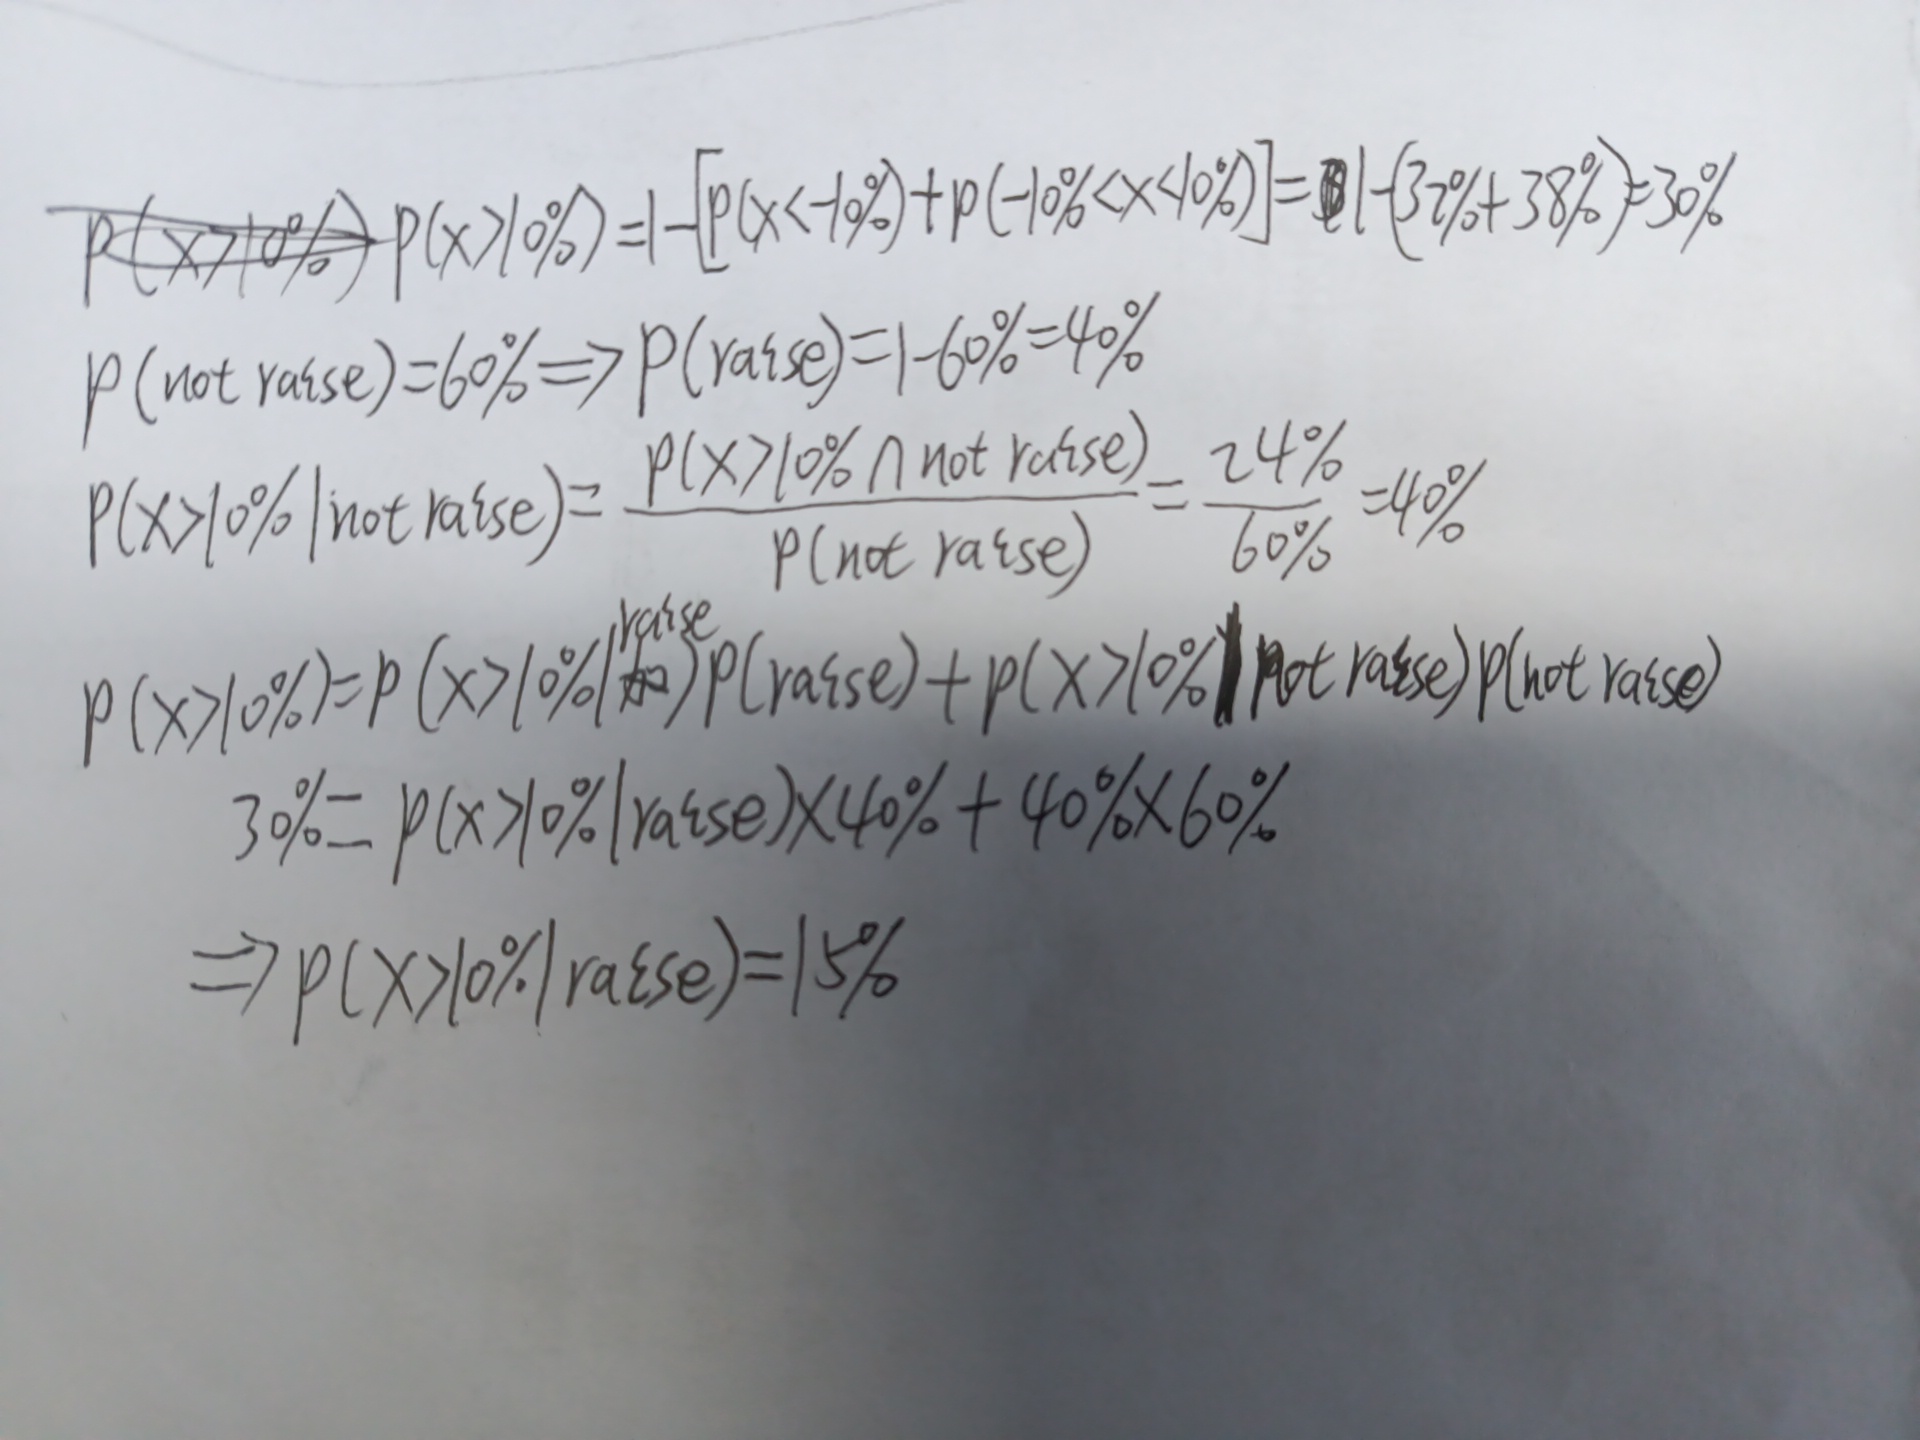 P(X>10%) P(X>10%)=1-[P(X<-10%)+P(-10%<X<10%)]=1-(32%+38%)=30%
P(not raise)=60%=>P(raise)=1-60%=40%
P(X>10%|not raise)=P(X>10%∩not raise)/P(not raise)=24%/60%=40%
P(X>10%)=P(X>10%|raise)P(raise)+P(X>10%|not raise)P(not raise)
30%=P(X>10%|raise)×40%+40%×60%
=>P(X>10%|raise)=15%